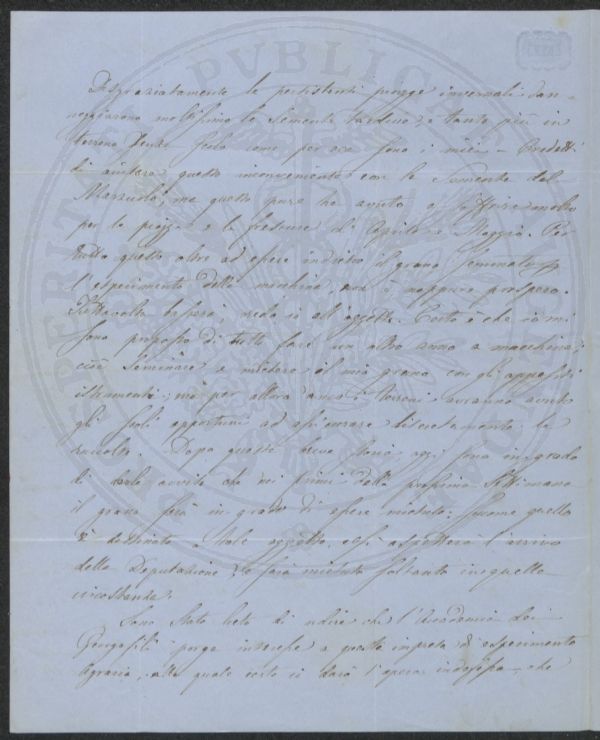 Disgraziatamente le persistenti piogge invernali dan-
neggiarono moltissimo le semente tardive e tanto più in
terreno tenue come per ora sono i miei - Credetti
di aiutare questo inconveniente con le semente del
Marzuolo, ma questo pure ha avuto a soffrire molto
per le piogge e le frescure di Aprile e Maggio. Per
tutto questo oltre ad essere indietro il grano seminato
l'esperimento della macchina, non è neppure prospero.
Tuttavolta servirà all'oggetto. Certo è che io mi
sono proposto di tutto fare un altro anno a macchina,
cioè seminare e mietere il mio grano con gli appositi
istrumenti; ma per allora anco i terreni avranno avuto
gli scoli opportuni ad assicurare discretamente la
raccolta. Dopo questa breve storia, oggi sono in grado
di darle avviso che nei primi della prossima settimana
il grano sarà in grado di essere mietuto: siccome quello
è destinato a tale oggetto, così aspetterà l'arrivo
della Deputazione, e sarà mietuto soltanto in quella
circostanza.
Sono stato lieto di udire che l'Accademia dei
Georgofili porga interesse a questa impresa di esperimento
Agrario, alla quale certo ci darà l'opera indefessa che
PVBLICAE
PROSPERITATI